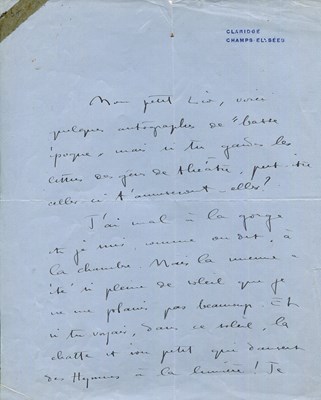 CLARIDGE
CHAMPS ELYSÉES
Mon petit Léo, voici
quelques autographes de "basse
époque", mais si tu gardes les
lettres des gens de théâtre, peut-être
celles-ci t'amuseront-elles?
J'ai mal à la gorge
et je suis, comme on dit, à
la chambre. Mais la mienne a
été si pleine de soleil que je
ne me plains pas beaucoup. Et
si tu voyais, dans ce soleil, la
chatte et son petit qui dansent
des Hymnes à la lumière! Je